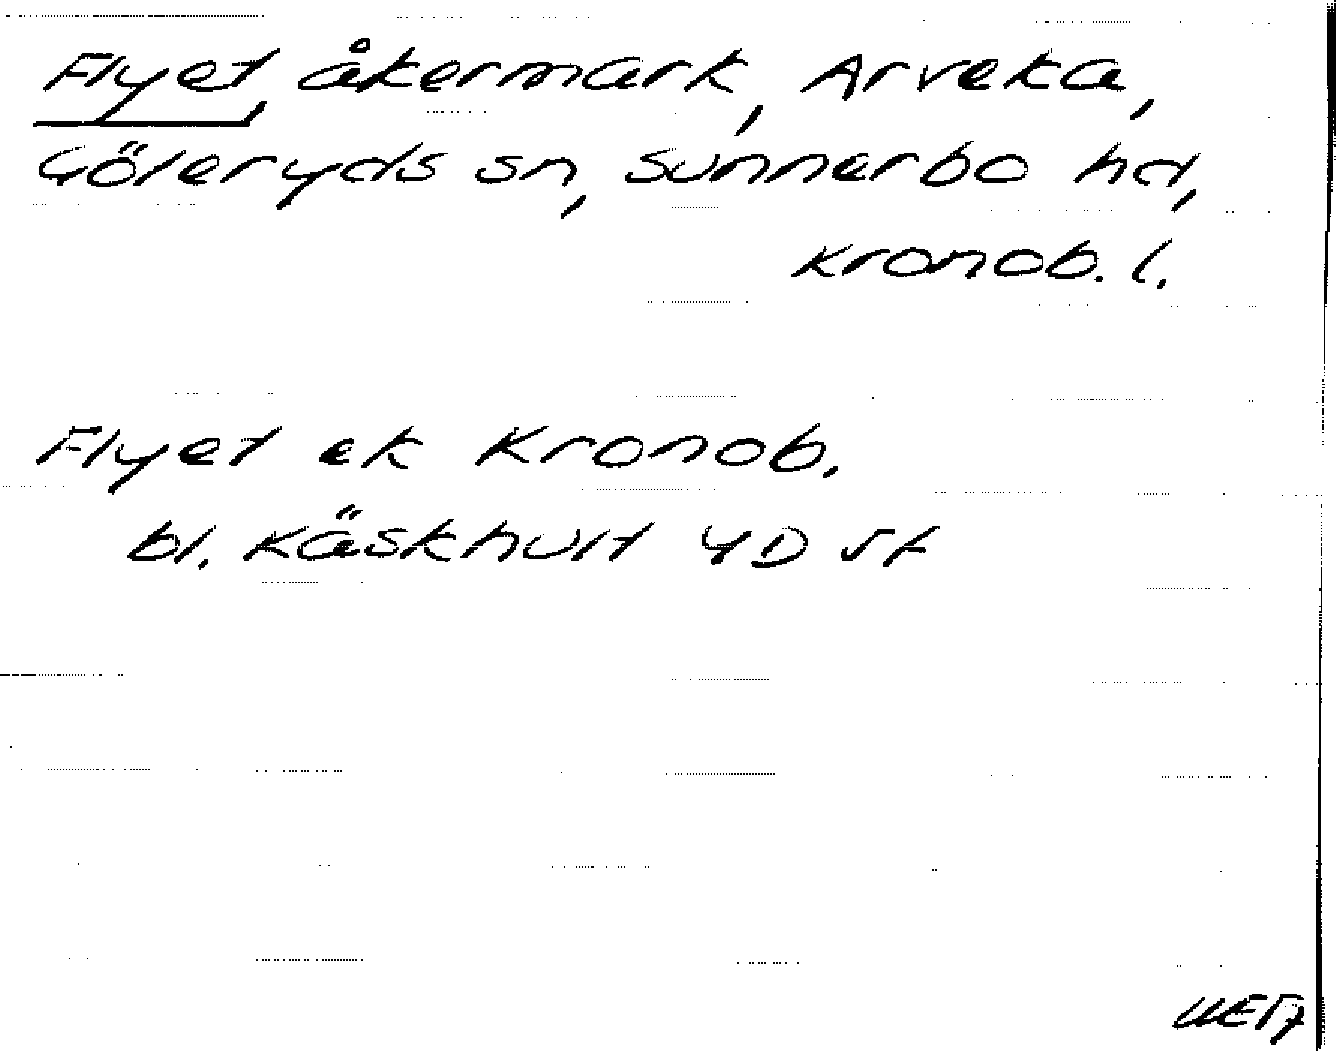 Flyet, åkermark, Arveka,
Göteryds sn, Sunnerbo hd,
Kronob. l.
Flyet ek Kronob.
bl. Käskhult 4D 5f